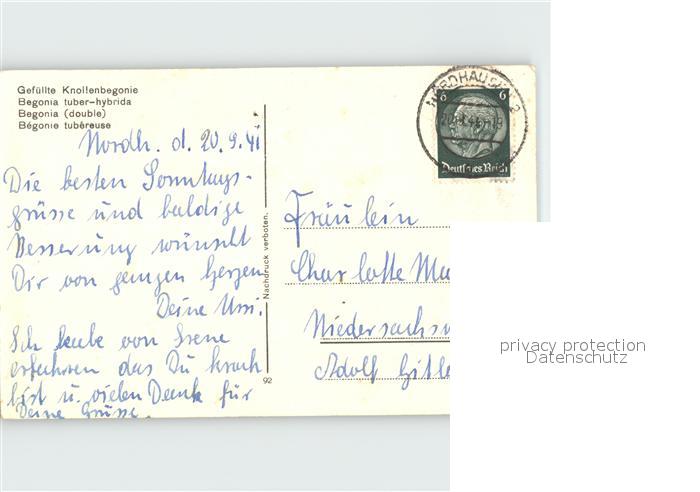 Gefüllte Knollenbegonie
Begonia tuber-hybrida
Begonia (double)
Bégonie tubéreuse
Nordh. d. 20.9.41
Die besten Sonntags-
grüsse und baldige
Besserung wünscht
Dir von ganzen Herzen
Deine Uri.
Ich habe von Irene
erfahren das Du krank
bist u. vielen Dank für
Deine Grüsse.
Nachdruck verboten.
92
NORDHAUSEN 2
6 6
Deutsches Reich
Fräulein
Charlotte Mu
Niedersachsw
Adolf Hitle
privacy protection
Datenschutz